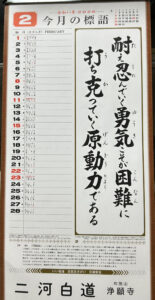 2 今月の標語
FEBRUARY
1
2
3
4
5
6
7
8
9
10
11
12
13
14
15
16
17
18
19
20
21
22
23
24
25
26
27
28
耐え忍んでいく勇気こそが困難に
打ち克っていく原動力である
二河白道
浄願寺